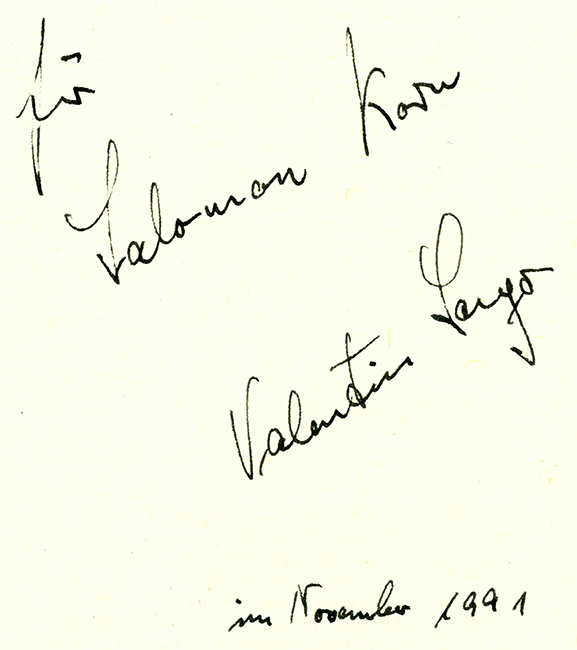 für
Salomon Korn
Valentin Senger
im November 1991